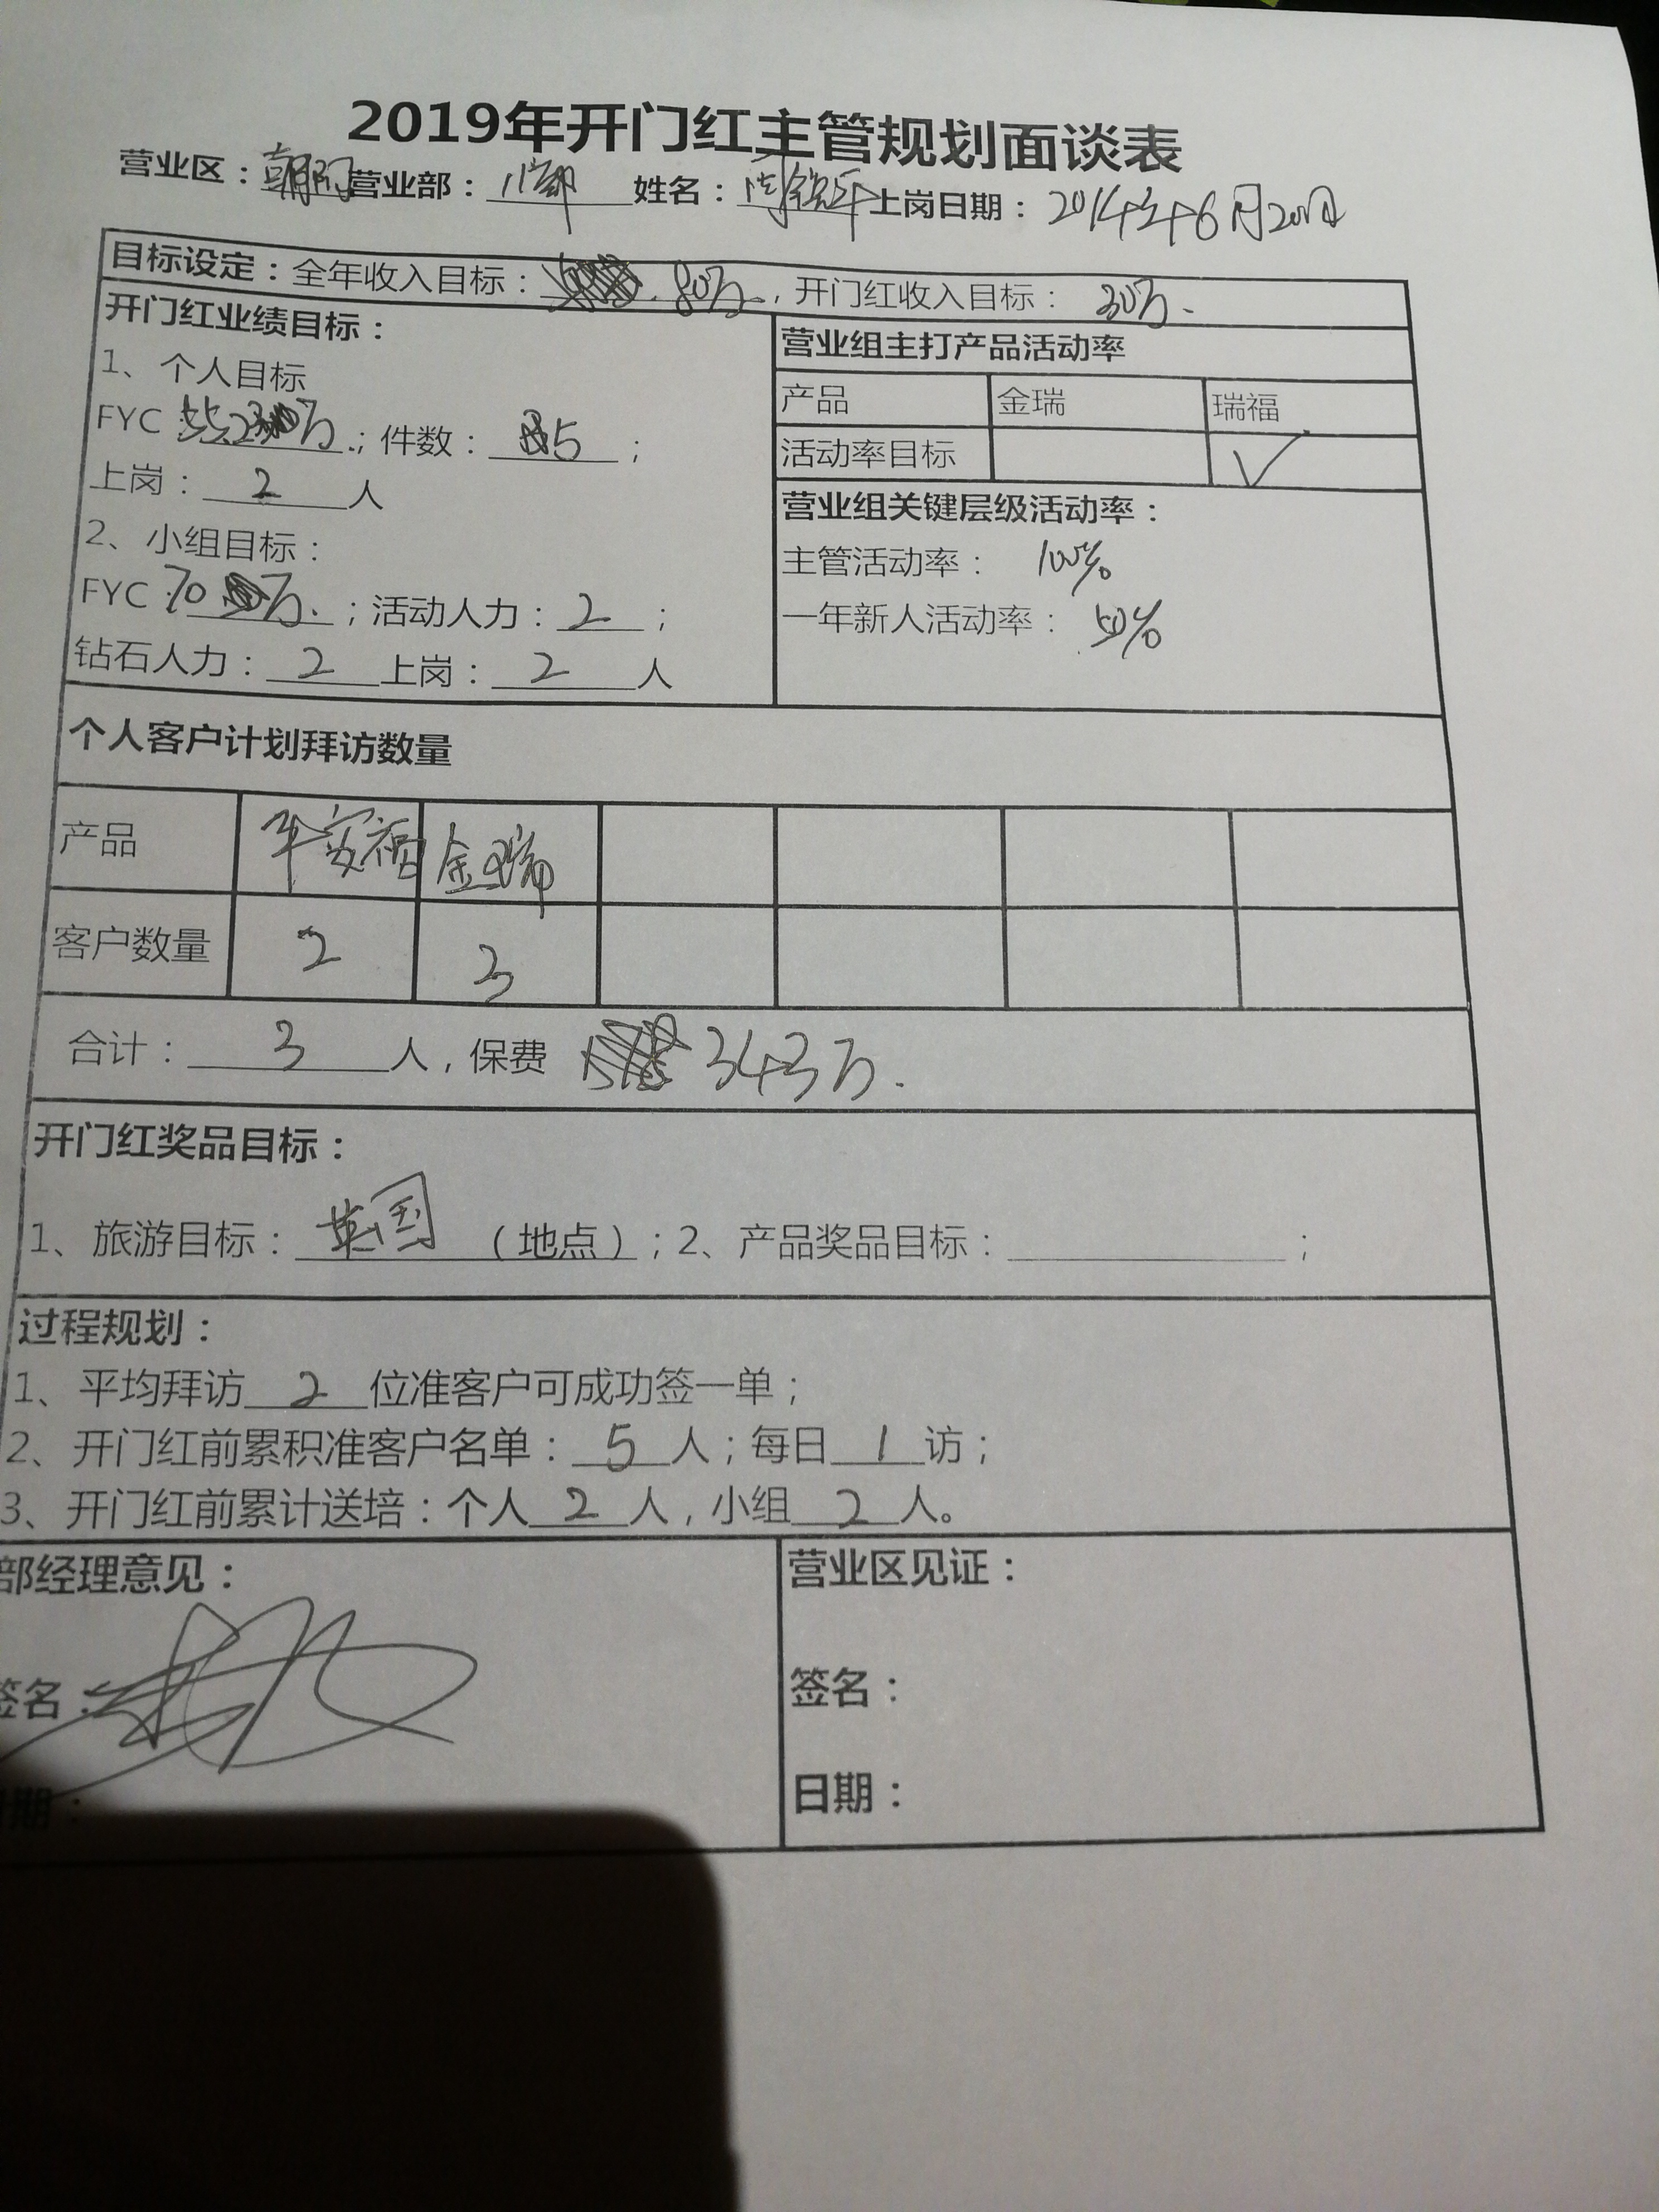 2019年开门红主管规划面谈表
营业区：朝阳 营业部：八部 姓名： 上岗日期：2014年6月20日
目标设定：全年收入目标：80万，开门红收入目标：30万.
开门红业绩目标：
1、个人目标
FYC：万；件数：5；
上岗：2人
2、小组目标：
FYC：70万.；活动人力：2；
钻石人力：2上岗：2人
营业组主打产品活动率
产品 金瑞 瑞福
活动率目标 √
营业组关键层级活动率：
主管活动率：100%
一年新人活动率：50%
个人客户计划拜访数量
产品 平安福 金瑞
客户数量 2 3
合计：3人，保费 343万.
开门红奖品目标：
1、旅游目标：英国（地点）；2、产品奖品目标：；
过程规划：
1、平均拜访2位准客户可成功签一单；
2、开门红前累积准客户名单：5人；每日1访；
3、开门红前累计送培：个人2人，小组2人。
部经理意见：
签名：
期：
营业区见证：
签名：
日期：